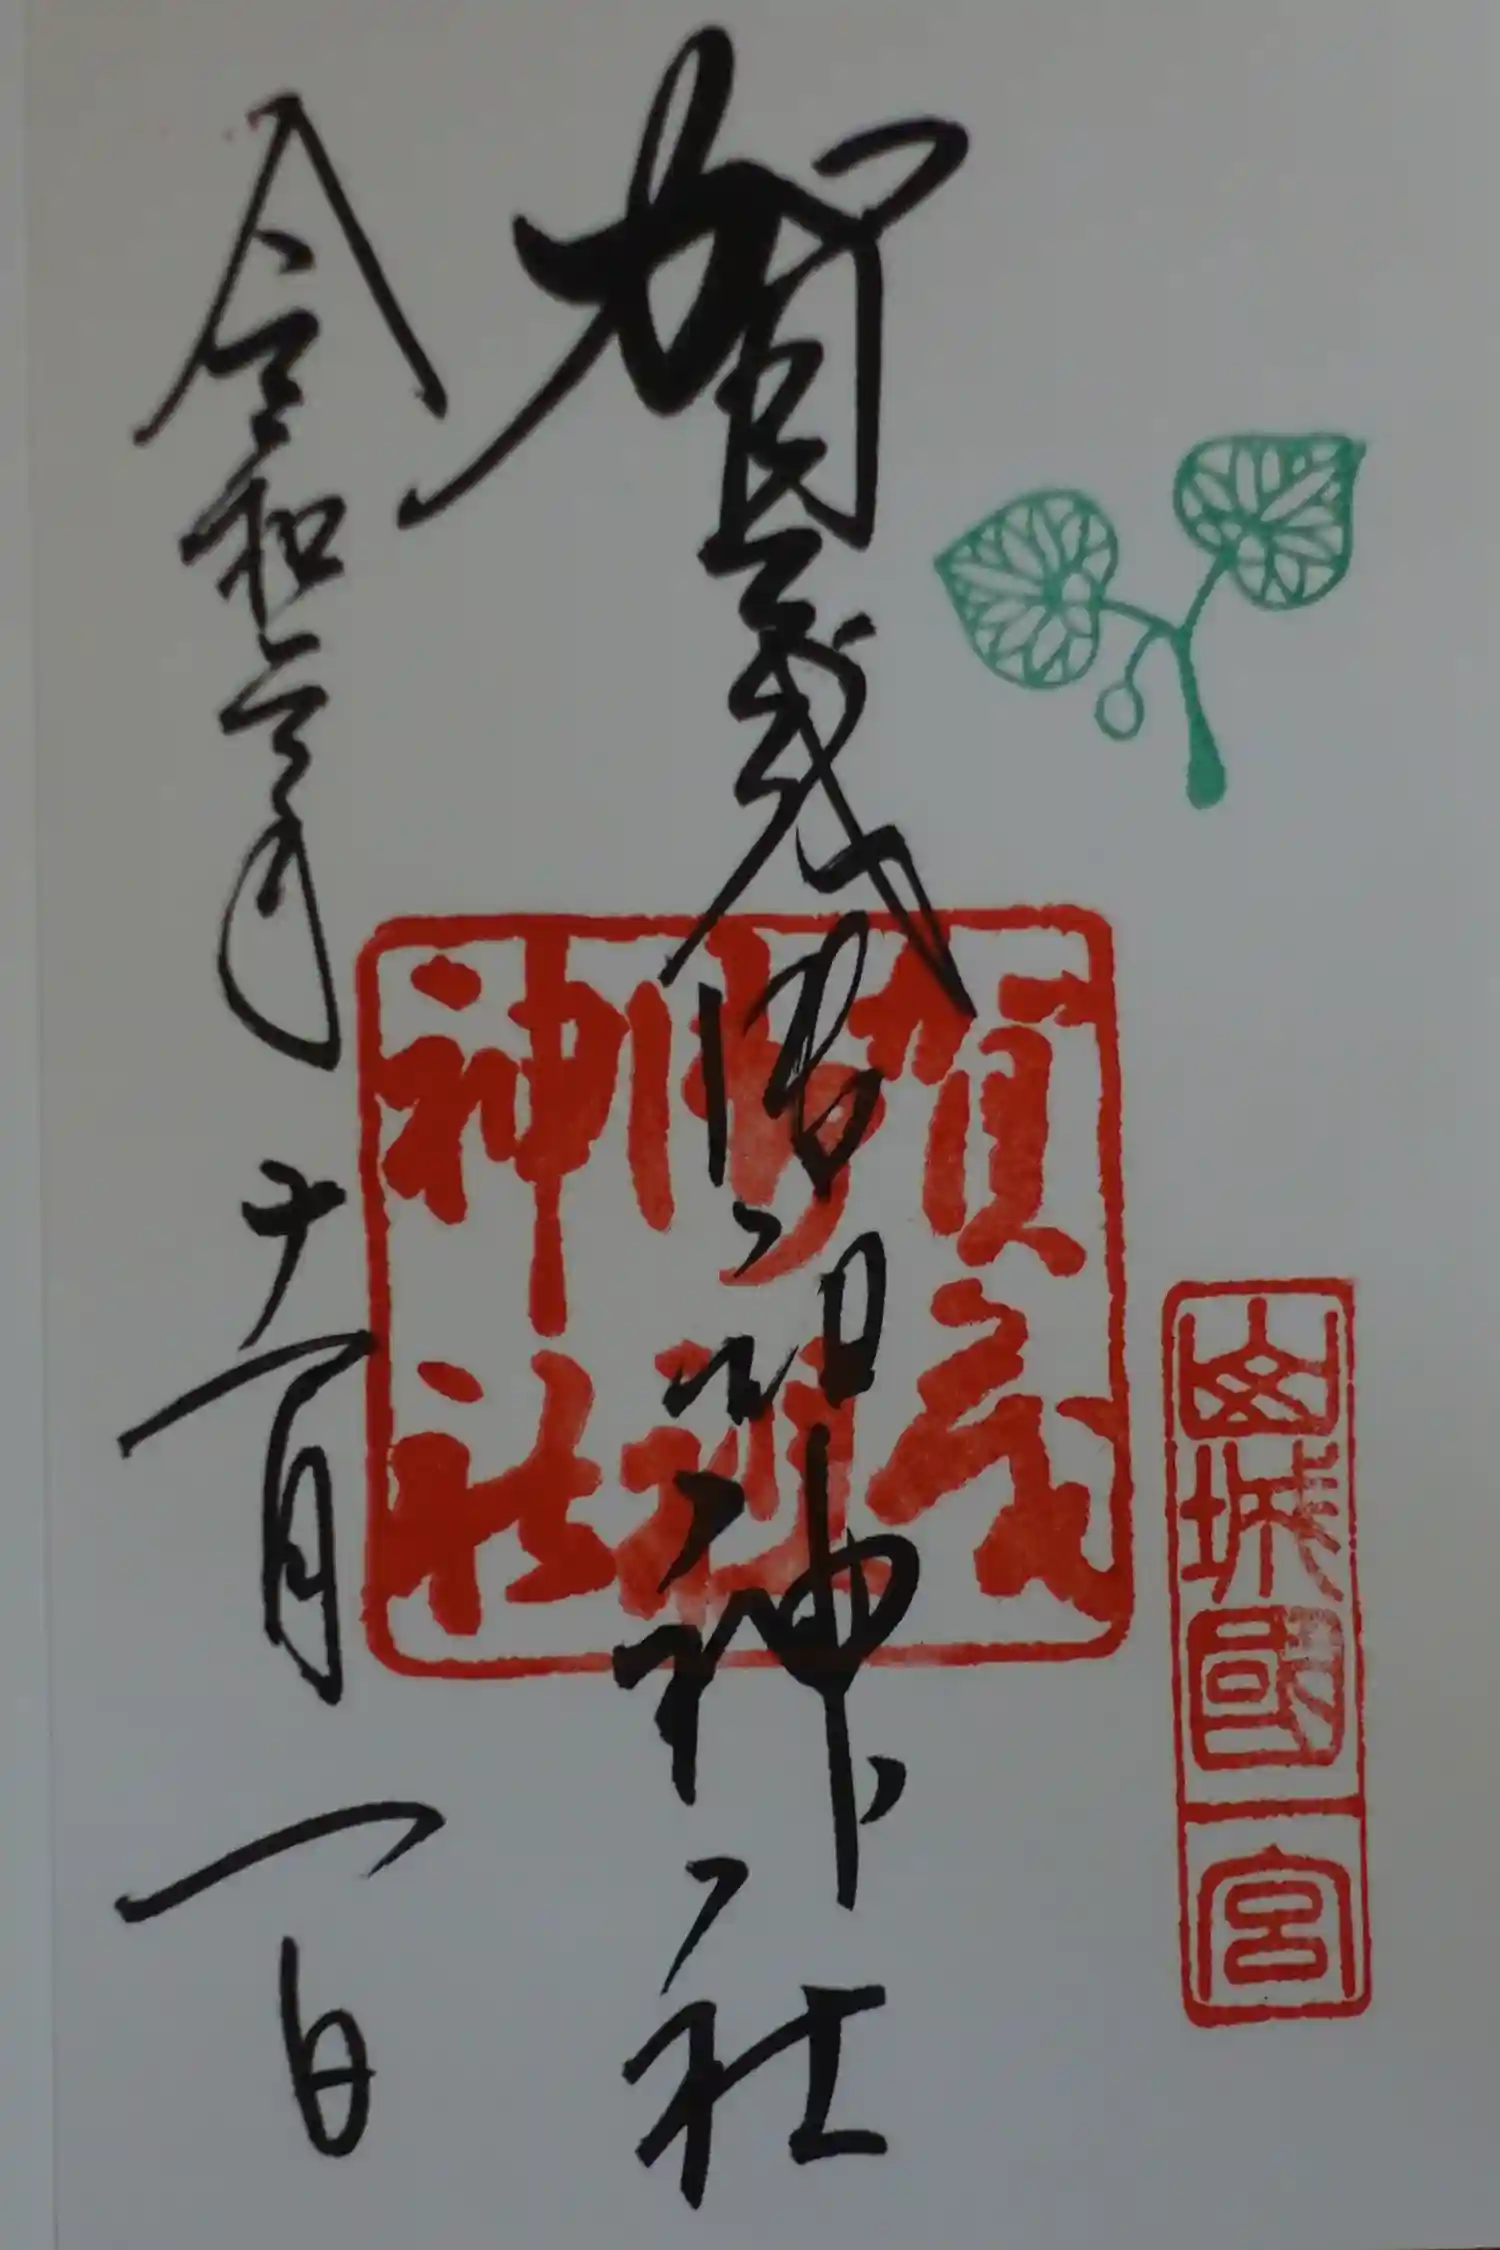 山城國一宮
賀茂御祖神社
賀茂御祖神社
令和年十一月一日